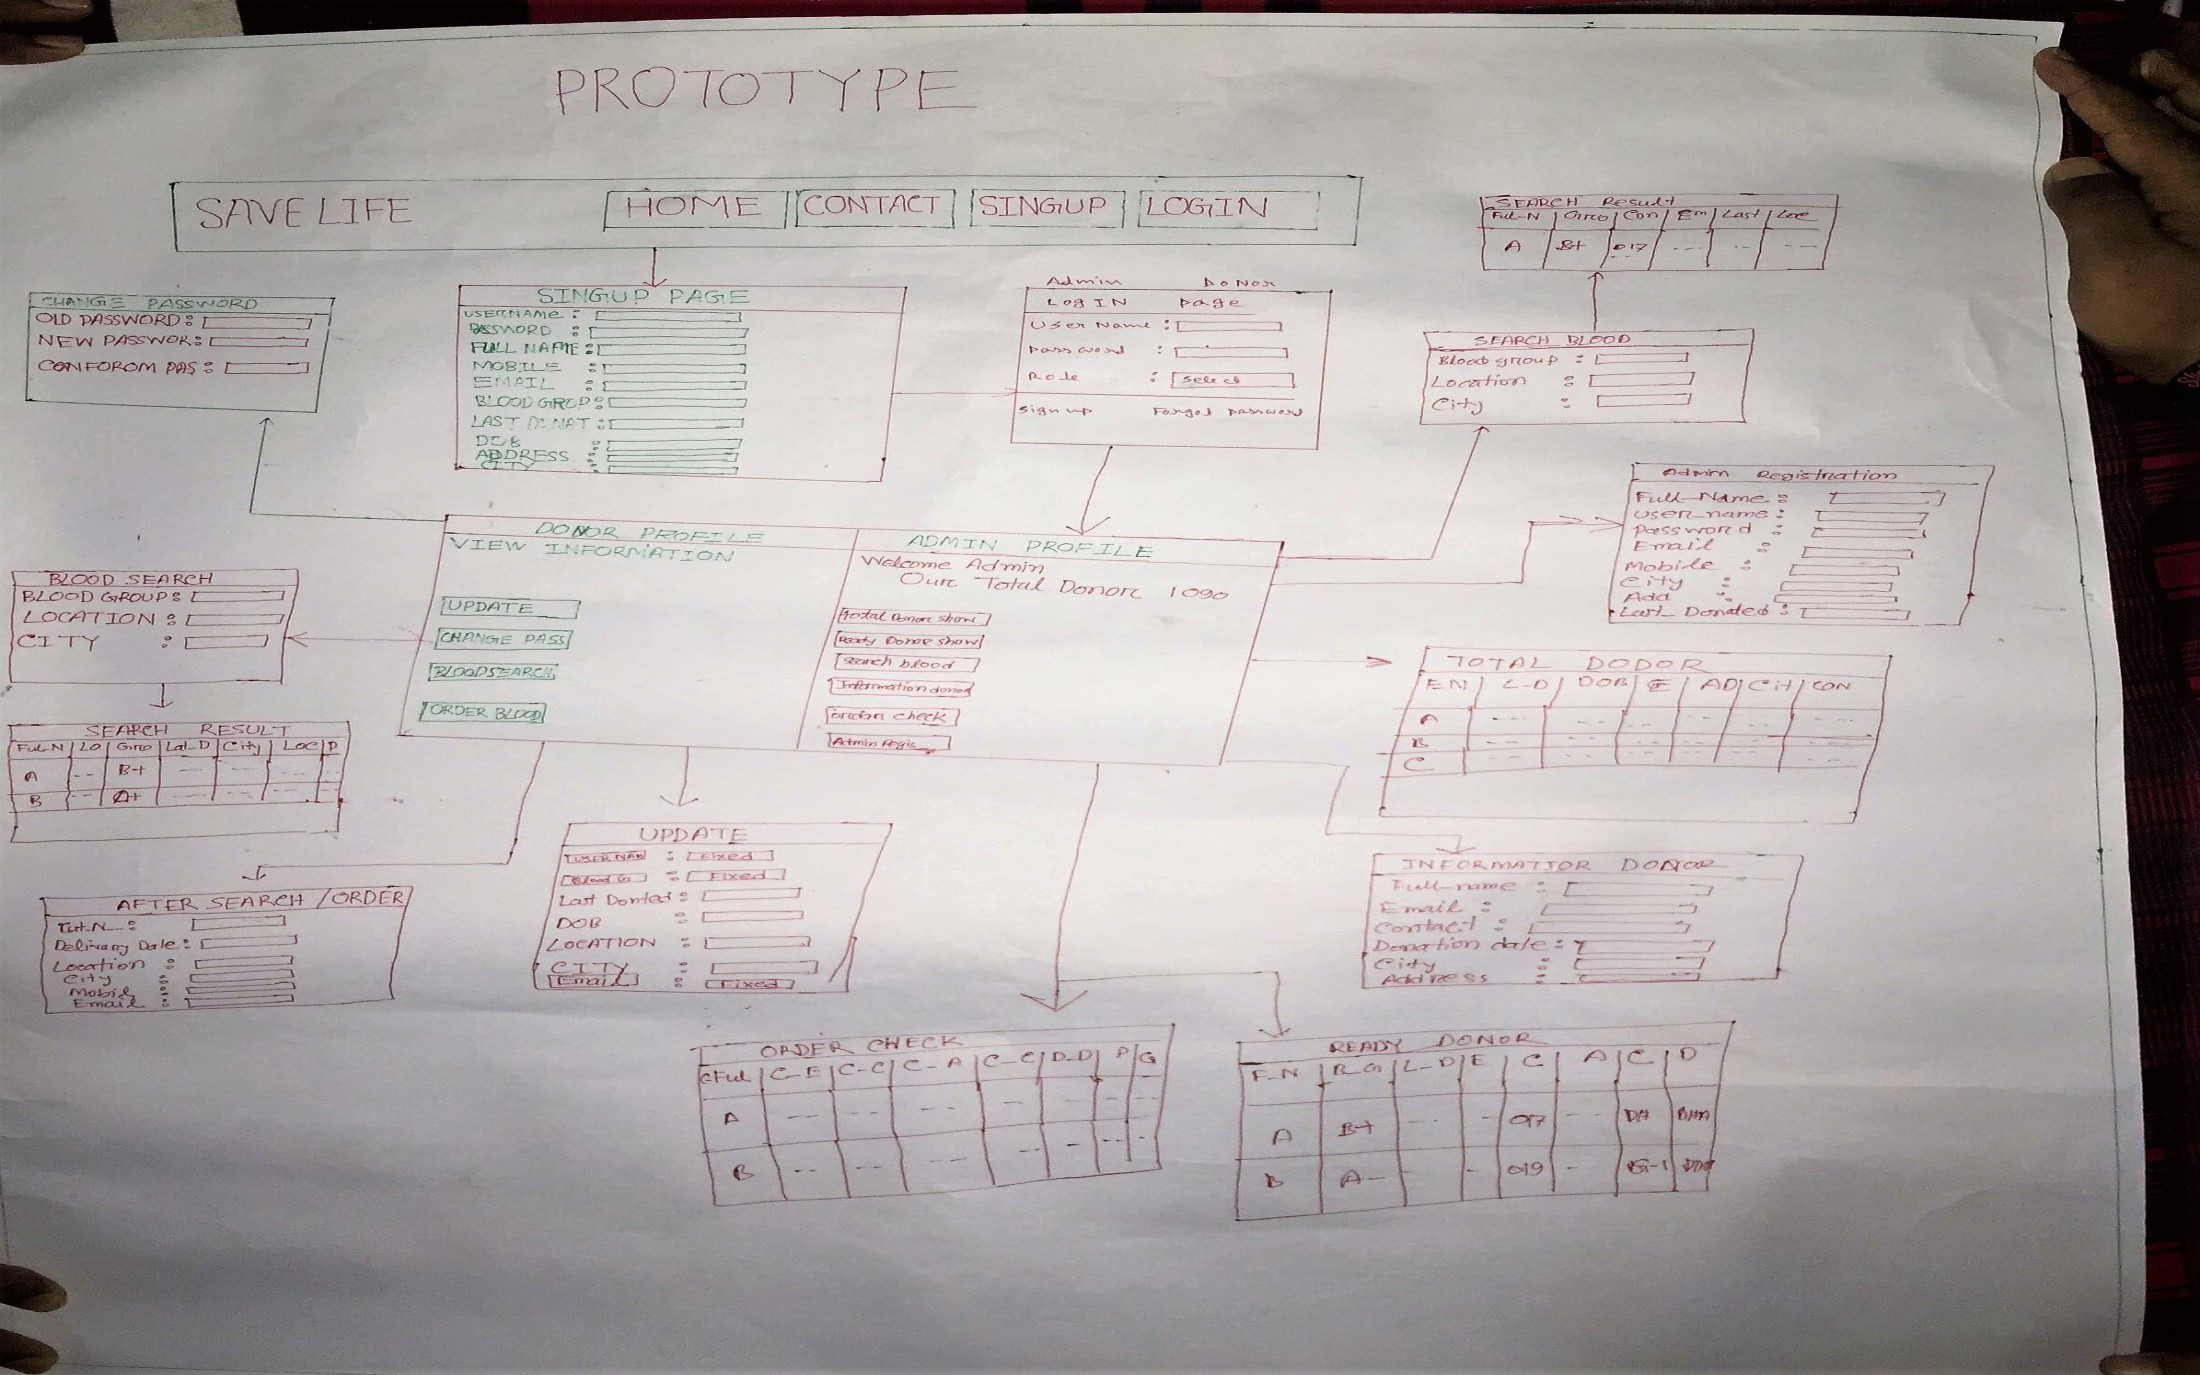 PROTOTYPE
SAVE LIFE
HOME
CONTACT
SINGUP
LOGIN
SEARCH Result
Ful-N Groo Con Em Last Loc
A B+ 017
CHANGE PASSWORD
OLD PASSWORD:
NEW PASSWOR:
CONFOROM PAS:
SINGUP PAGE
USERNAME :
PASSWORD :
FULL NAME :
MOBILE :
EMAIL :
BLOOD GROP :
LAST DONAT :
DOB :
ADDRESS :
CITY :
Admin DONOR
LogIN page
User Name :
password :
Role : Select
Sign up Forgot password
SEARCH BLOOD
Blood group :
Location :
City :
Admin Registration
Full-Name :
user_name :
password :
Email :
Mobile :
City :
Add :
Last Donated :
DONOR PROFILE
VIEW INFORMATION
UPDATE
CHANGE PASS
BLOODSEARCH
ORDER BLOOD
ADMIN PROFILE
Welcome Admin
Our Total Donor 1090
total Donor show
Ready Donor show
search blood
Information donor
order check
Admin Regis
BLOOD SEARCH
BLOOD GROUP :
LOCATION :
CITY :
SEARCH RESULT
Ful-N LO Groo Lat_D City Loc P
A B+
B A+
TOTAL DODOR
EM L-D DOB E AD CiH CON
A
B
C
AFTER SEARCH / ORDER
Delivary Date :
Location :
City :
Mobil :
Email :
UPDATE
USER NAM : Fixed
Blood G : Fixed
Last Donted :
DOB :
LOCATION :
CITY :
Email : Fixed
INFORMATIOR DONOR
Full-name :
Email :
Contact :
Donation date :
City :
Address :
ORDER CHECK
CFul C-E C-C C-A C-C D-D P G
A
B
READY DONOR
F-N B-G L-D E C A C D
A B+ 017 DH BHA
B A- 019